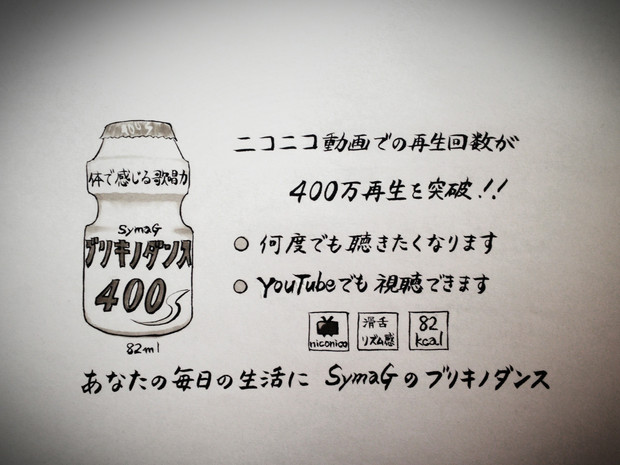 体で感じる歌唱力
SymaG
ブリキノダンス
400
82ml
ニコニコ動画での再生回数が
400万再生を突破!!
何度でも聴きたくなります
YouTubeでも視聴できます
niconico
滑舌
リズム感
82
kcal
あなたの毎日の生活に SymaGのブリキノダンス